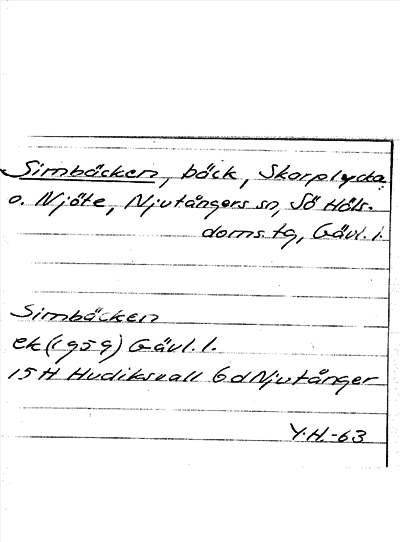 Simbäcken, bäck, Skarplycka
o. Njöte, Njutångers sn, Sö Häls.
doms. tg, Gävl. l.
Simbäcken
ek (1959) Gävl. l.
15H Hudiksvall 6d Njutånger
Y.H.-63